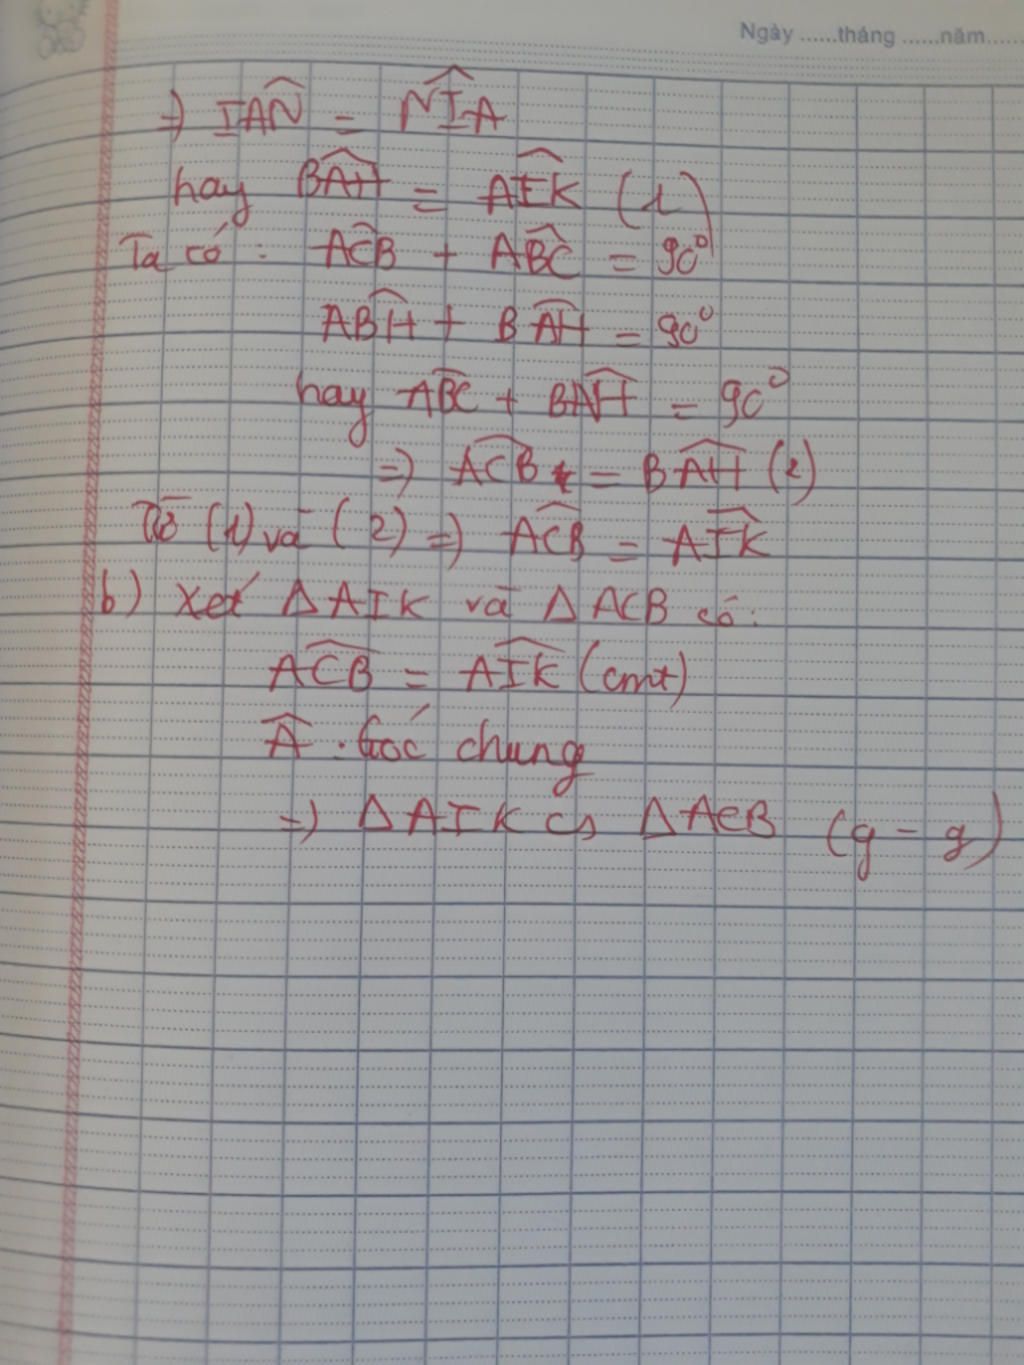 Ngày ......tháng ......năm......
=) IAN̂ = NÎA
hay BÂH = AÎK (1)
Ta có: AĈB + AB̂C = 90⁰
AB̂H + BÂH = 90⁰
hay AB̂C + BÂH = 90⁰
=) AĈB = BÂH (2)
Từ (1) và (2) =) AĈB = AÎK
b) Xét Δ AIK và Δ ACB có:
AĈB = AÎK (cmt)
Â: Góc chung
=) Δ AIK ∽ Δ ACB (g - g)